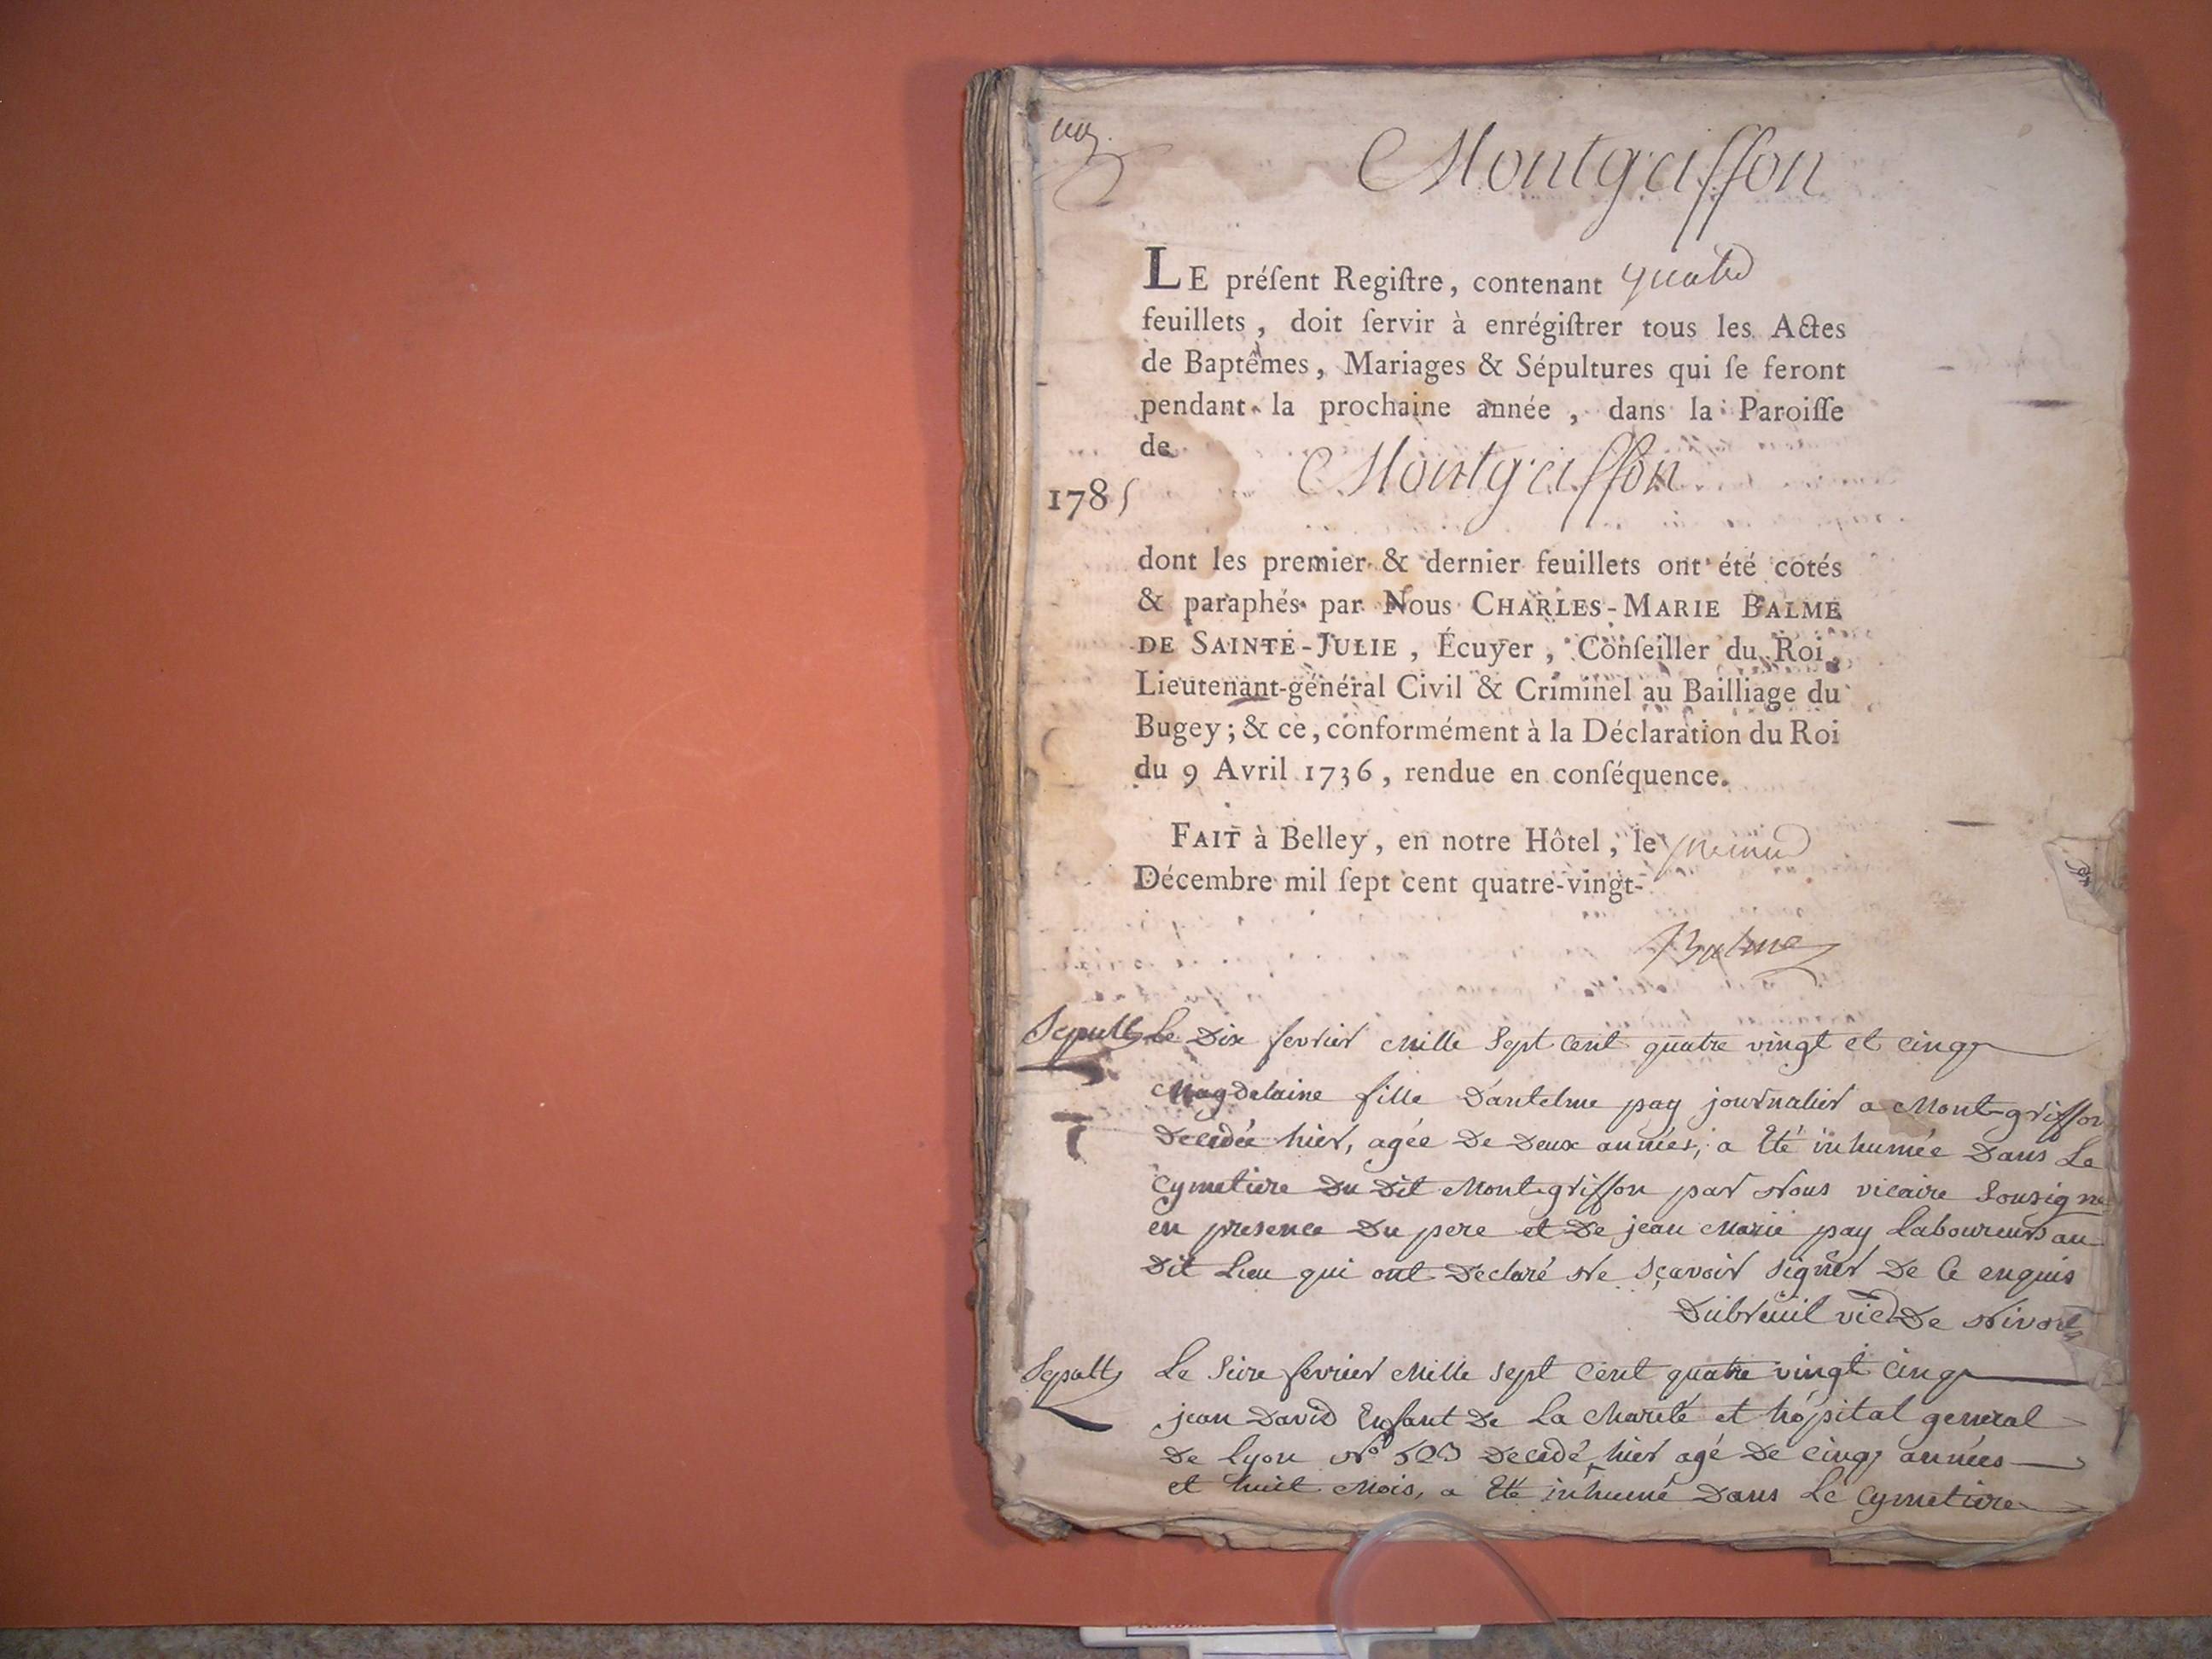 Montgriffon
LE préſent Regiſtre, contenant quatre
feuillets, doit ſervir à enrégiſtrer tous les Actes
de Baptêmes, Mariages & Sépultures qui ſe feront
pendant la prochaine année, dans la Paroiſſe
de Montgriffon
1785
dont les premier & dernier feuillets ont été cotés
& paraphés par Nous CHARLES-MARIE BALME
DE SAINTE-JULIE, Écuyer, Conſeiller du Roi,
Lieutenant-général Civil & Criminel au Bailliage du
Bugey; & ce, conformément à la Déclaration du Roi
du 9 Avril 1736, rendue en conſéquence.
FAIT à Belley, en notre Hôtel, le premier
Décembre mil ſept cent quatre-vingt-
Balme
Sepult Le Dix fevrier Mille Sept Cent quatre vingt et cinq
Magdelaine fille D'antelme pay journalier a Montgriffon
Decedée hier, agée De Deux années, a Eté inhumée Dans Le
Cymetiere Du Dit Montgriffon par Nous vicaire Sousigné
en presence Du pere et De jean Marie pay Laboureurs au
Dit Lieu qui ont Declaré Ne Sçavoir Signer De Ce enquis
Dubreuil vic De Nivol
Sepult Le Seize fevrier Mille Sept Cent quatre vingt Cinq
jean David Enfant De La Charité et hôpital general
De Lyon No Decedé hier agé De Cinq années
et huit Mois, a Eté inhumé Dans Le Cymetiere